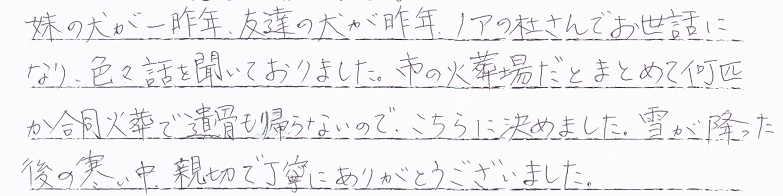 妹の犬が一昨年、友達の犬が昨年、ノアの杜さんでお世話に
なり、色々話を聞いておりました。市の火葬場だとまとめて何匹
か合同火葬で遺骨も帰らないので、こちらに決めました。雪が降った
後の寒い中、親切で丁寧にありがとうございました。